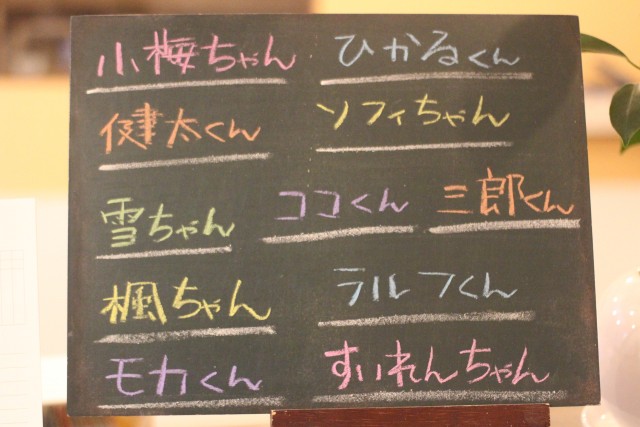 小梅ちゃん ひかるくん
健太くん ソフィちゃん
雪ちゃん ココくん 三郎くん
楓ちゃん ラルフくん
モカくん すいれんちゃん